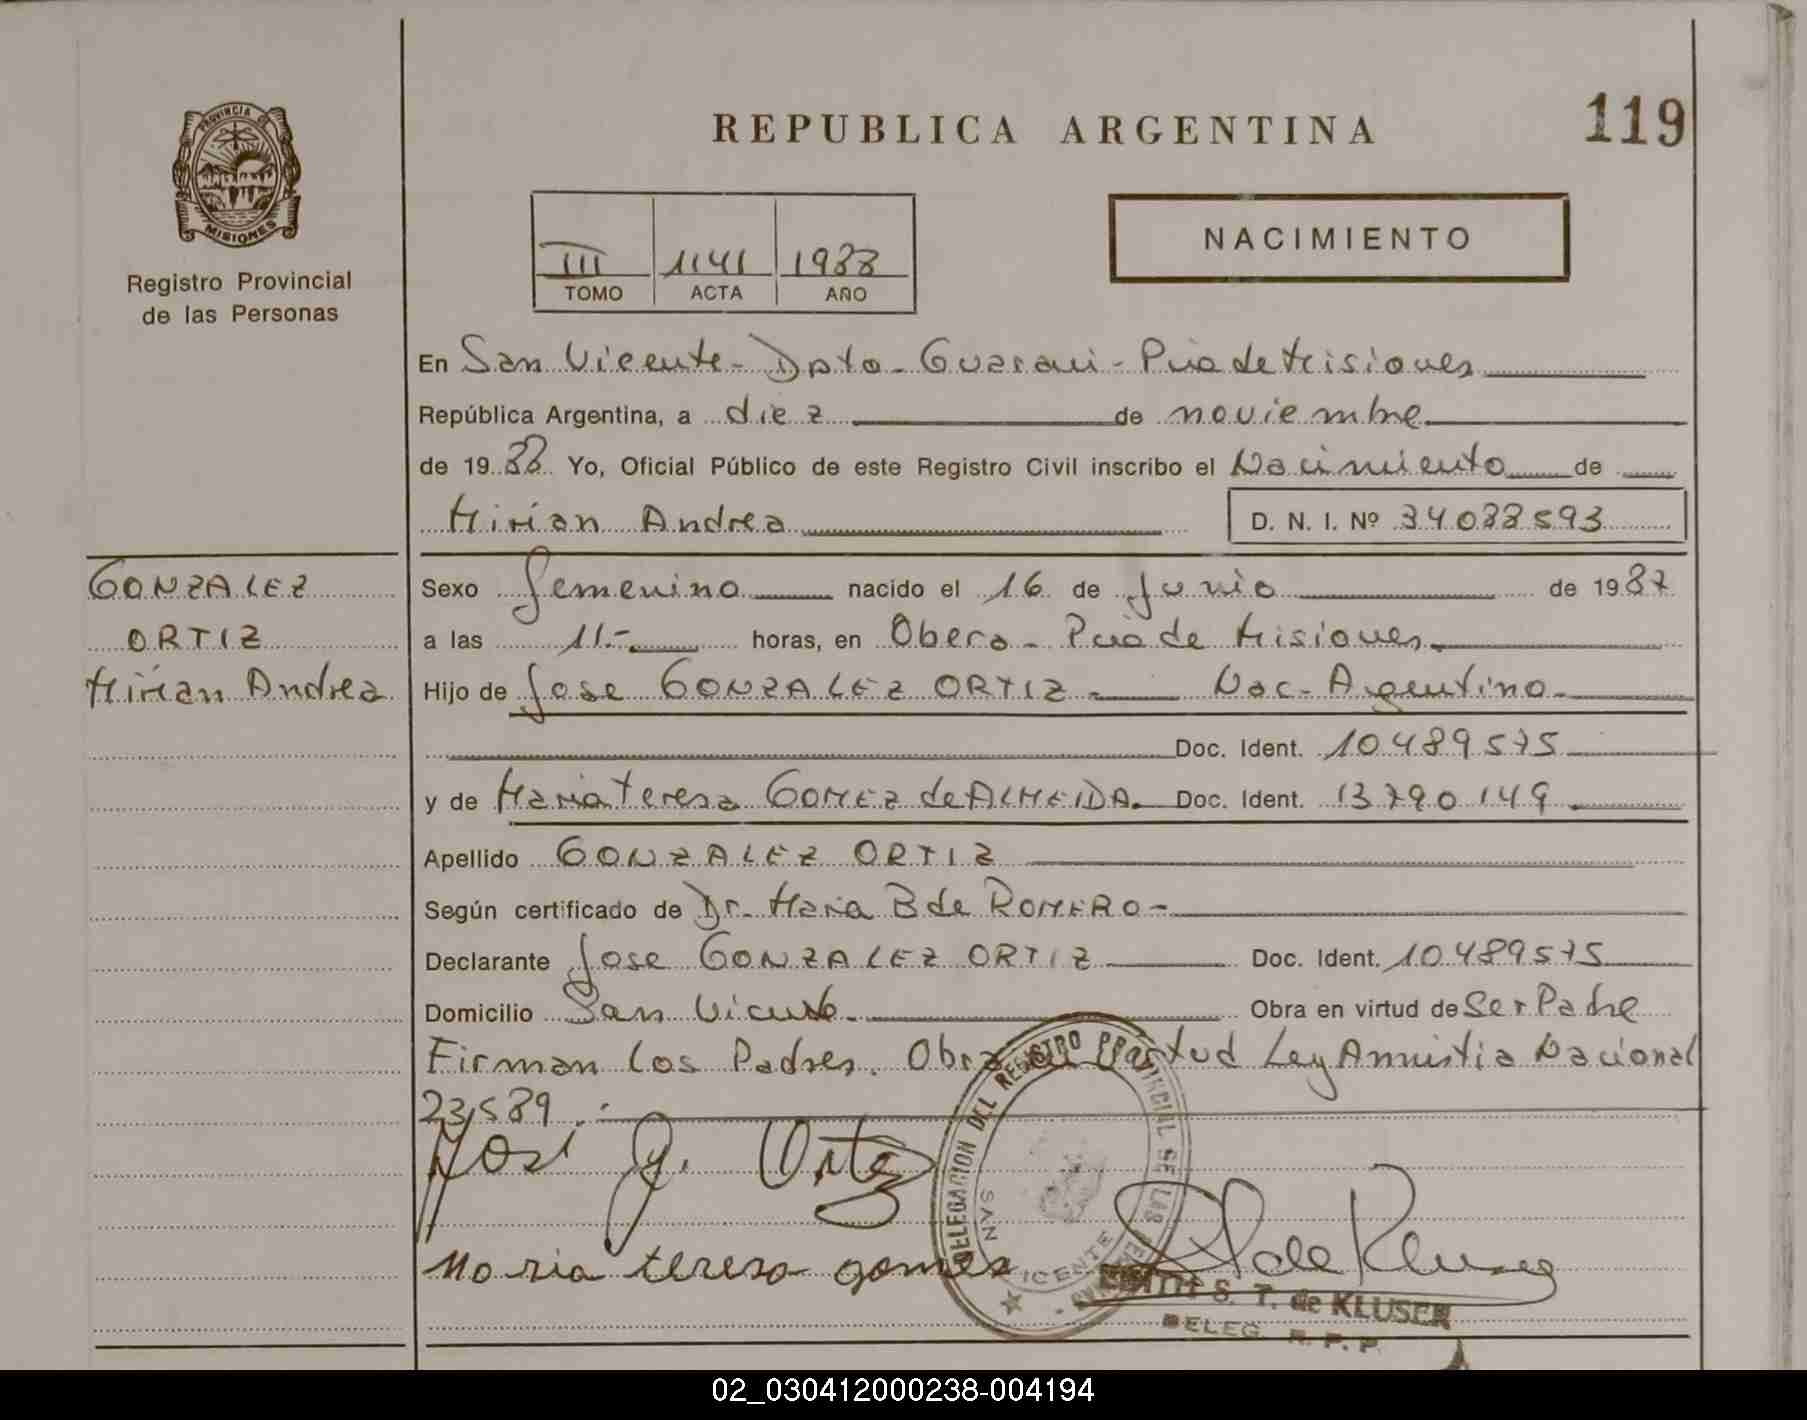 119
REPUBLICA ARGENTINA
PROVINCIA DE
MISIONES
Registro Provincial
de las Personas
III 1141 1988
TOMO ACTA AÑO
NACIMIENTO
En San Vicente - Dpto - Guarani - Pcia de Misiones
República Argentina, a diez de noviembre
de 19 88 Yo, Oficial Público de este Registro Civil inscribo el Nacimiento de
Mirian Andrea D. N. I. Nº 34088593
GONZALEZ
ORTIZ
Mirian Andrea
Sexo femenino nacido el 16 de Junio de 1987
a las 11.- horas, en Obera - Pcia de Misiones
Hijo de Jose GONZALEZ ORTIZ - Nac - Argentino -
Doc. Ident. 10489575
y de Maria Teresa GOMEZ de ALMEIDA. Doc. Ident. 13790149
Apellido GONZALEZ ORTIZ
Según certificado de Dr. Maria B de ROMERO -
Declarante Jose GONZALEZ ORTIZ Doc. Ident. 10489575
Domicilio San Vicente Obra en virtud de Ser Padre
Firman los Padres. Obra en virtud Ley Amnistia Nacional
23589.-
José g. Ortiz
maria teresa gomes
DELEGACION DEL REGISTRO PROVINCIAL DE LAS PERSONAS
SAN VICENTE
de Kluser
S. T. de KLUSER
DELEG. R. P. P.
02_030412000238-004194